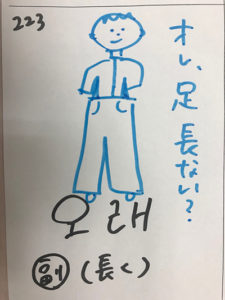 223
オレ、足長ない？
오래
副（長く）